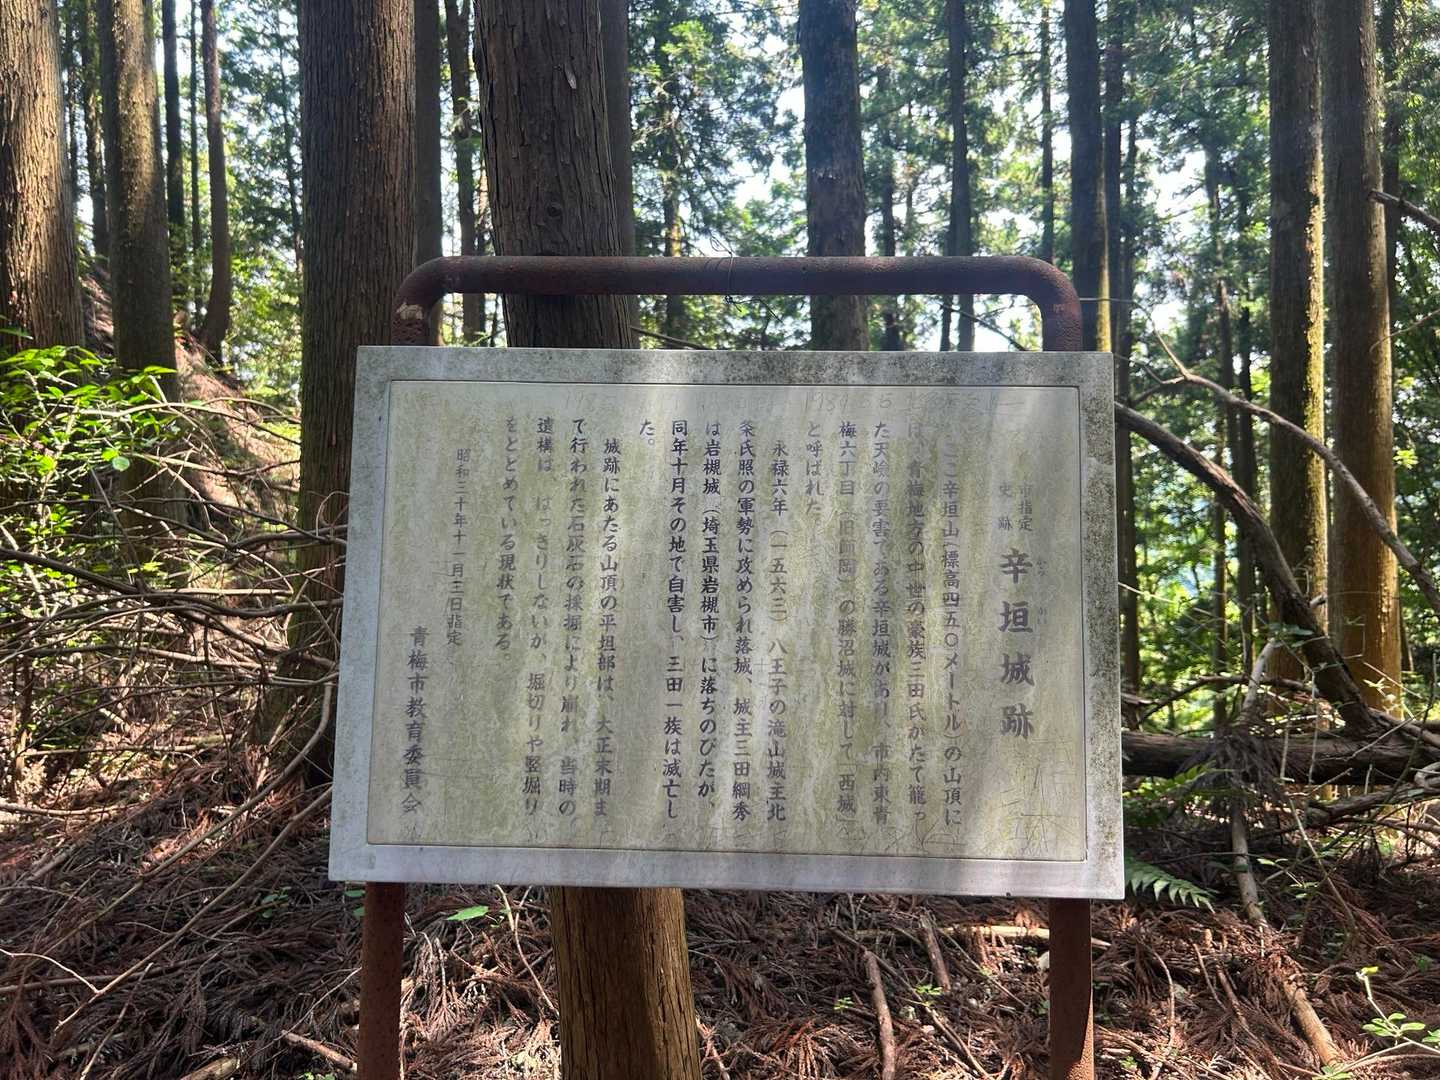 市指定
史跡
辛垣城跡
からかい
ここ辛垣山(標高四五〇メートル)の山頂に
は、青梅地方の中世の豪族三田氏がたて籠っ
た天嶮の要害である辛垣城があり、市内東青
梅六丁目(旧師岡)の勝沼城に対して「西城」
と呼ばれた。
永禄六年(一五六三)八王子の滝山城主北
条氏照の軍勢に攻められ落城、城主三田綱秀
は岩槻城(埼玉県岩槻市)に落ちのびたが、
同年十月その地で自害し、三田一族は滅亡し
た。
城跡にあたる山頂の平坦部は、大正末期ま
で行われた石灰石の採掘により崩れ、当時の
遺構は、はっきりしないが、堀切りや竪堀り
をとどめている現状である。
昭和三十年十一月三日指定
青梅市教育委員会